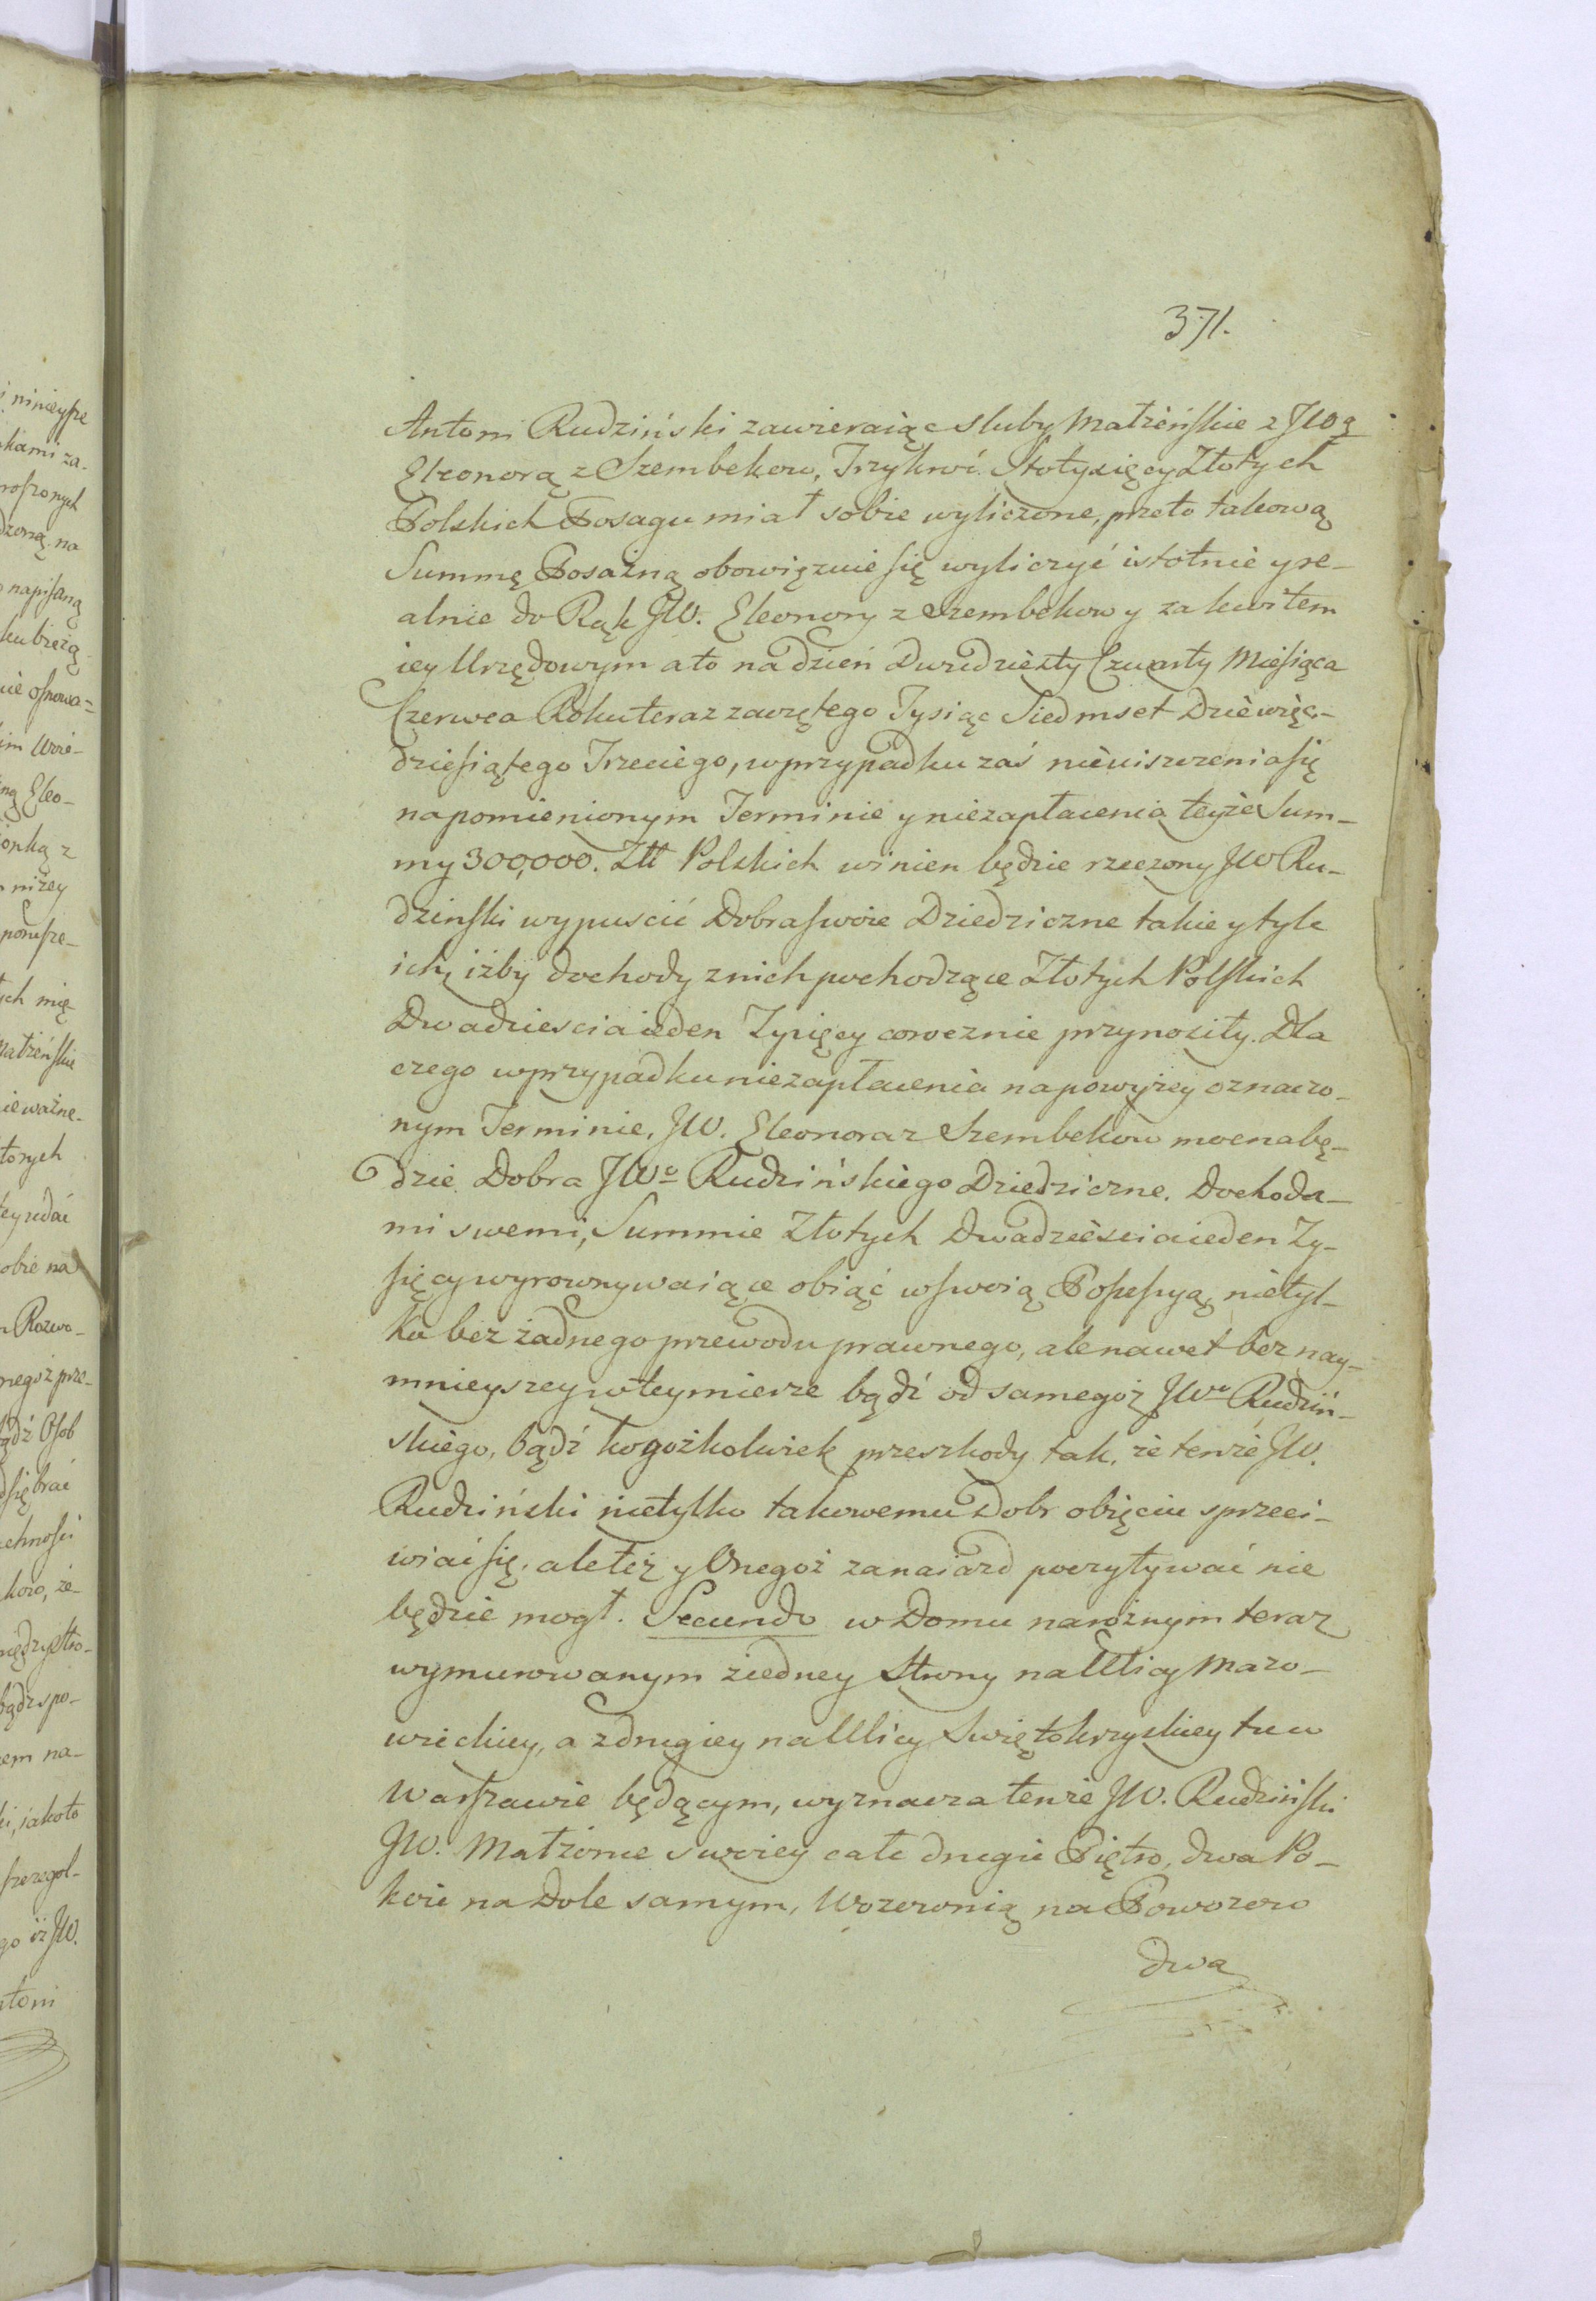 371.
Antoni Rudziński zawieraiąc sluby Małżeńskie z JWą
Eleonorą z Szembekow, Trzykroć Stotysięcy Złotych
Polskich Posagu miał sobie wyliczone, przeto takową
Summę Posażną obowięzuie się wyliczyć istotnie y re-
alnie do Rąk JW. Eleonory z Szembekow y za kwitem
iey Urzędowym a to na dzień Dwudziesty Czwarty Miesiąca
Czerwca Roku teraz zawziętego Tysiąc Siedmset Dziewięć-
dziesiątego Trzeciego, w przypadku zaś nieuiszczenia się
na pomienionym Terminie y niezapłacenia teyże Sum-
my 300,000. Złł Polskich winien będzie rzeczony JW Ru-
dzinski wypuscić Dobra swoie Dziedziczne takie y tyle
ich, iżby dochody z nich pochodzące Złotych Polskich
Dwadziescia ieden Tysięcy corocznie przynosiły. Dla
czego w przypadku niezapłacenia na powyżey oznaczo-
nym Terminie, JW. Eleonora z Szembekow mocna bę-
dzie Dobra JWo Rudzińskiego Dziedziczne, Dochoda-
mi swemi, Summie Złotych Dwadziescia ieden Ty-
sięcy wyrownywaiące obiąć w swoią Possessyą, nietyl-
ko bez żadnego przewodu prawnego, ale nawet bez nay-
mnieyszey w tey mierze bądź od samegoż JWo Rudziń-
skiego, bądź kogożkolwiek przeszkody tak, że tenże JW.
Rudziński nietylko takowemu Dobr obięciu sprzeci-
wiać się, ale też y Onegoż za naiazd poczytywać nie
będzie mogł. Secundo w Domu narożnym teraz
wymurowanym z iedney Strony na Ulicy Mazo-
wieckiey, a z drugiey na Ulicy Swiętokrzyskiey tu w
Warszawie będącym, wyznacza tenże JW. Rudziński
JW. Małżonce swoiey całe drugie Piętro, dwa Po-
koie na Dole samym, Wozownią na Powozow
dwa
i ninieysze
kami za-
proszonych
dzoną na
napisaną
ku bieżą
nie osnowa=
ną Eleo-
onką z
niżey
ch mię
Małżeńskie
ieważne.
torych
obie na
Rozwo-
negoż prze-
ądź Osob
się brać
koro, że-
ądź spo-
em na-
i, iakoto
szczegol-
go iż JW.
ntoni